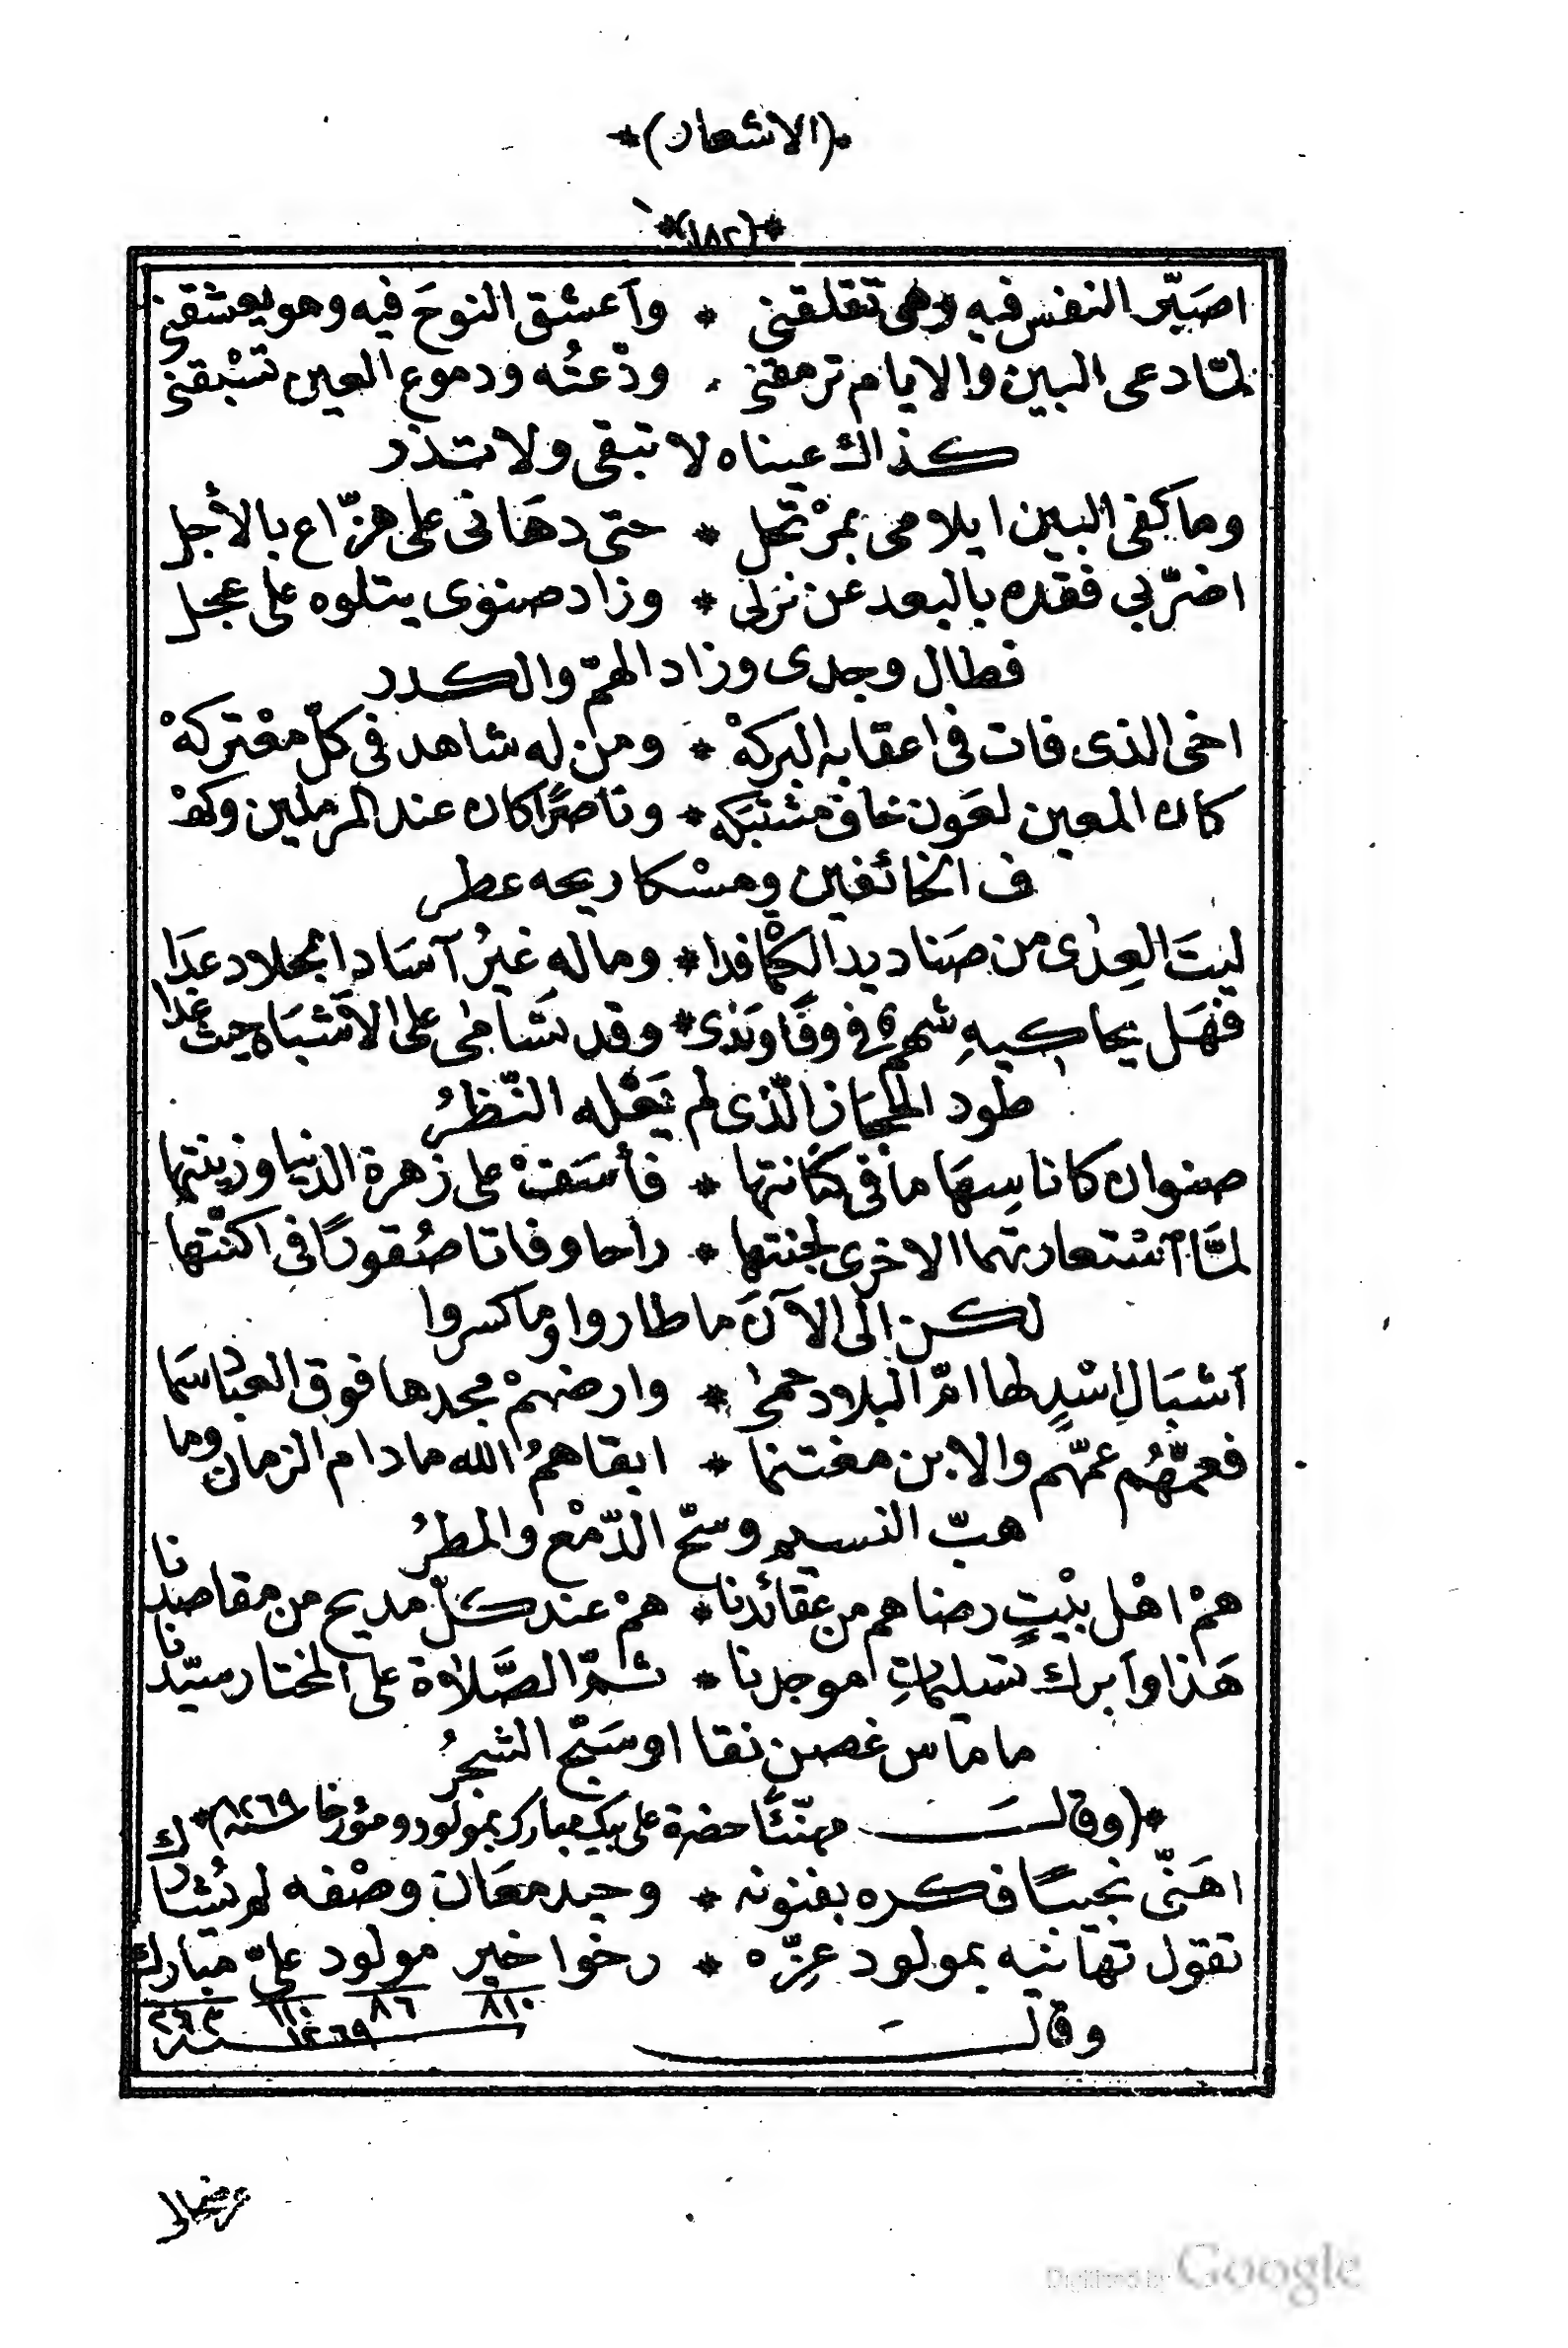 *(الاشعار)*
*(١٨٢)*
اصَبّر النفس فيه وهى تقلقنى * وآعشق النوحَ فيه وهو يعشقنى
لمّا دعى البين والايام ترمقنى * ودّعتُه ودموع العين تسْبقنى
كذاك عيناه لا تبقى ولا تذر
وما كفى البين ايلامى بمرْتحل * حتى دهَانى على هزّاع بالأجل
اضرّ بي فقده بالبعد عن نزلى * وزاد صنوى يتلوه على عجل
فطال وجدى وزاد الهمّ والكدر
اخى الذى فات فى اعقابه البركهْ * ومن له شاهد فى كلّ معْتركهْ
كان المعين لعَون خاف مشتبَكه * وناصرًا كان عند المرملين وكهْ
ف الخائفين ومسْكا ريحه عطر
ليتَ العِدٰى من صَناديد الكُمْا فدا * وماله غيرُ آسَاد الجلاد عَدَا
فهَل يحاكيهِ شهم فى وفًا وَندٰى * وقد تسَامٰى على الاَشبَاه حيث غدا
طود الحجَاز الّذى لم يَعْله النّظرُ
صنوان كانا سِهَاما فى كنانتها * فأسَفتْ على زهرة الدنيا وزينتها
لمَّا آستعارتهما الاخرى لجنتها * راحا وفاتا صُقورًا فى اكنّتها
لكن الى الآنَ ما طاروا وما كسروا
آشبَالِ اسْدٍ لها امّ البلاد حمىٰ * وارضهمْ مجدها فوق العبَاد سَما
فعمّهُم عمّهم والابن مغتنما * ابقاهمُ الله مادام الزمان وما
هبّ النسيم وسحّ الدّمْع والمطرُ
همْ اهْل بيْتٍ رضاهم من عقائدنا * همْ عند كلّ مديح من مقاصدنا
هَذا وآبرك تسليماتِ موجدنا * ثمّ الصَّلاٰة على المختار سيّدنا
ما مَاس غصن نقا او سَبّح الشجرُ
*(وقالَ مهنّئًا حضرة على بيك مبارك بمولود ومؤرخا سنة ١٢٦٩)*
اهَنّى نجيبًا فكره بفنونه * وحيد معَان وصْفه لم يُشارك
تقول تهانيه بمولود عِزّه * رخوا خير مولود علىّ مبارك
٨١٠ ٨٦ ١١٠ ٢٦٣
سنة ١٢٦٩
وقالَ
Digitized by Google